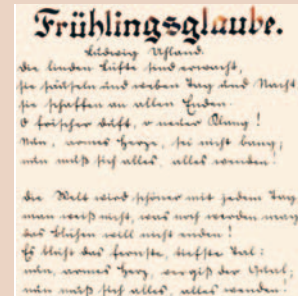 Frühlingsglaube.
Ludwig Uhland.
Die linden Lüfte sind erwacht,
sie säuseln und weben Tag und Nacht
sie schaffen an allen Enden.
O frischer Duft, o neuer Klang!
Nun, armes Herze, sei nicht bang;
nun muß sich alles, alles wenden!
Die Welt wird schöner mit jedem Tag
man weiß nicht, was noch werden mag
das Blühen will nicht enden!
Es blüht das fernste, tiefste Tal:
nun, armes Herz, vergiß der Qual;
nun muß sich alles, alles wenden!